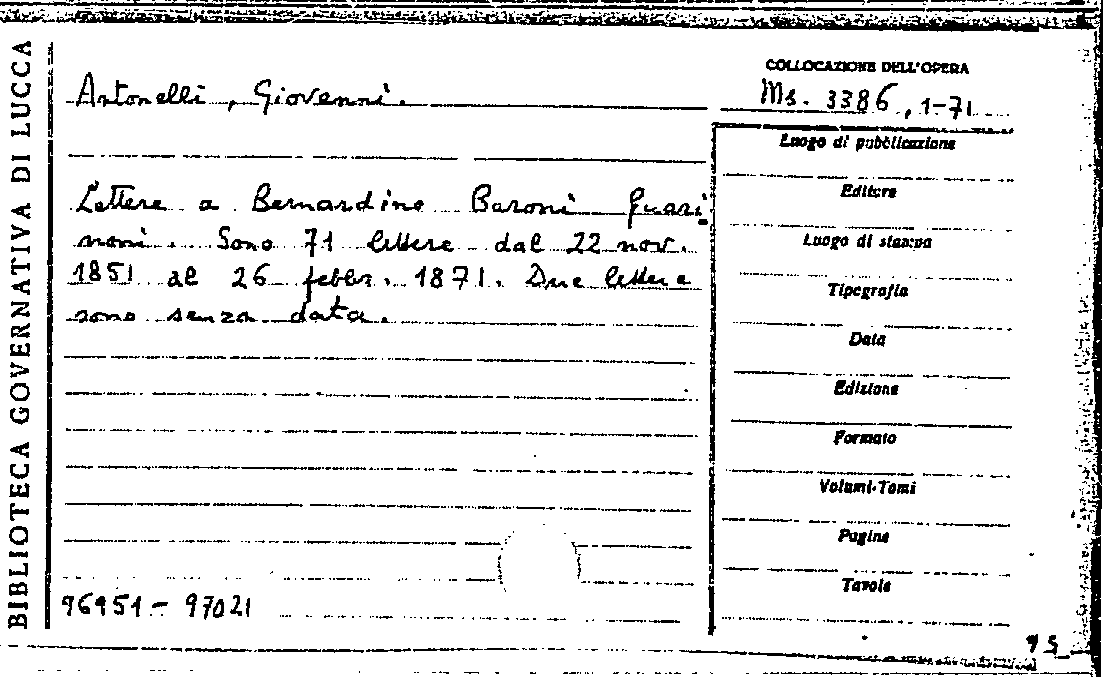 BIBLIOTECA GOVERNATIVA DI LUCCA
Antonelli, Giovanni.
COLLOCAZIONE DELL'OPERA
Ms. 3386, 1-71
Lettere a Bernardino Baroni Guari
noni. Sono 71 lettere dal 22 nov.
1851 al 26 febbr. 1871. Due lettere
sono senza data.
Luogo di pubblicazione
Editore
Luogo di stampa
Tipografia
Data
Edizione
Formato
Volumi-Tomi
Pagine
Tavole
96951 - 97021
95